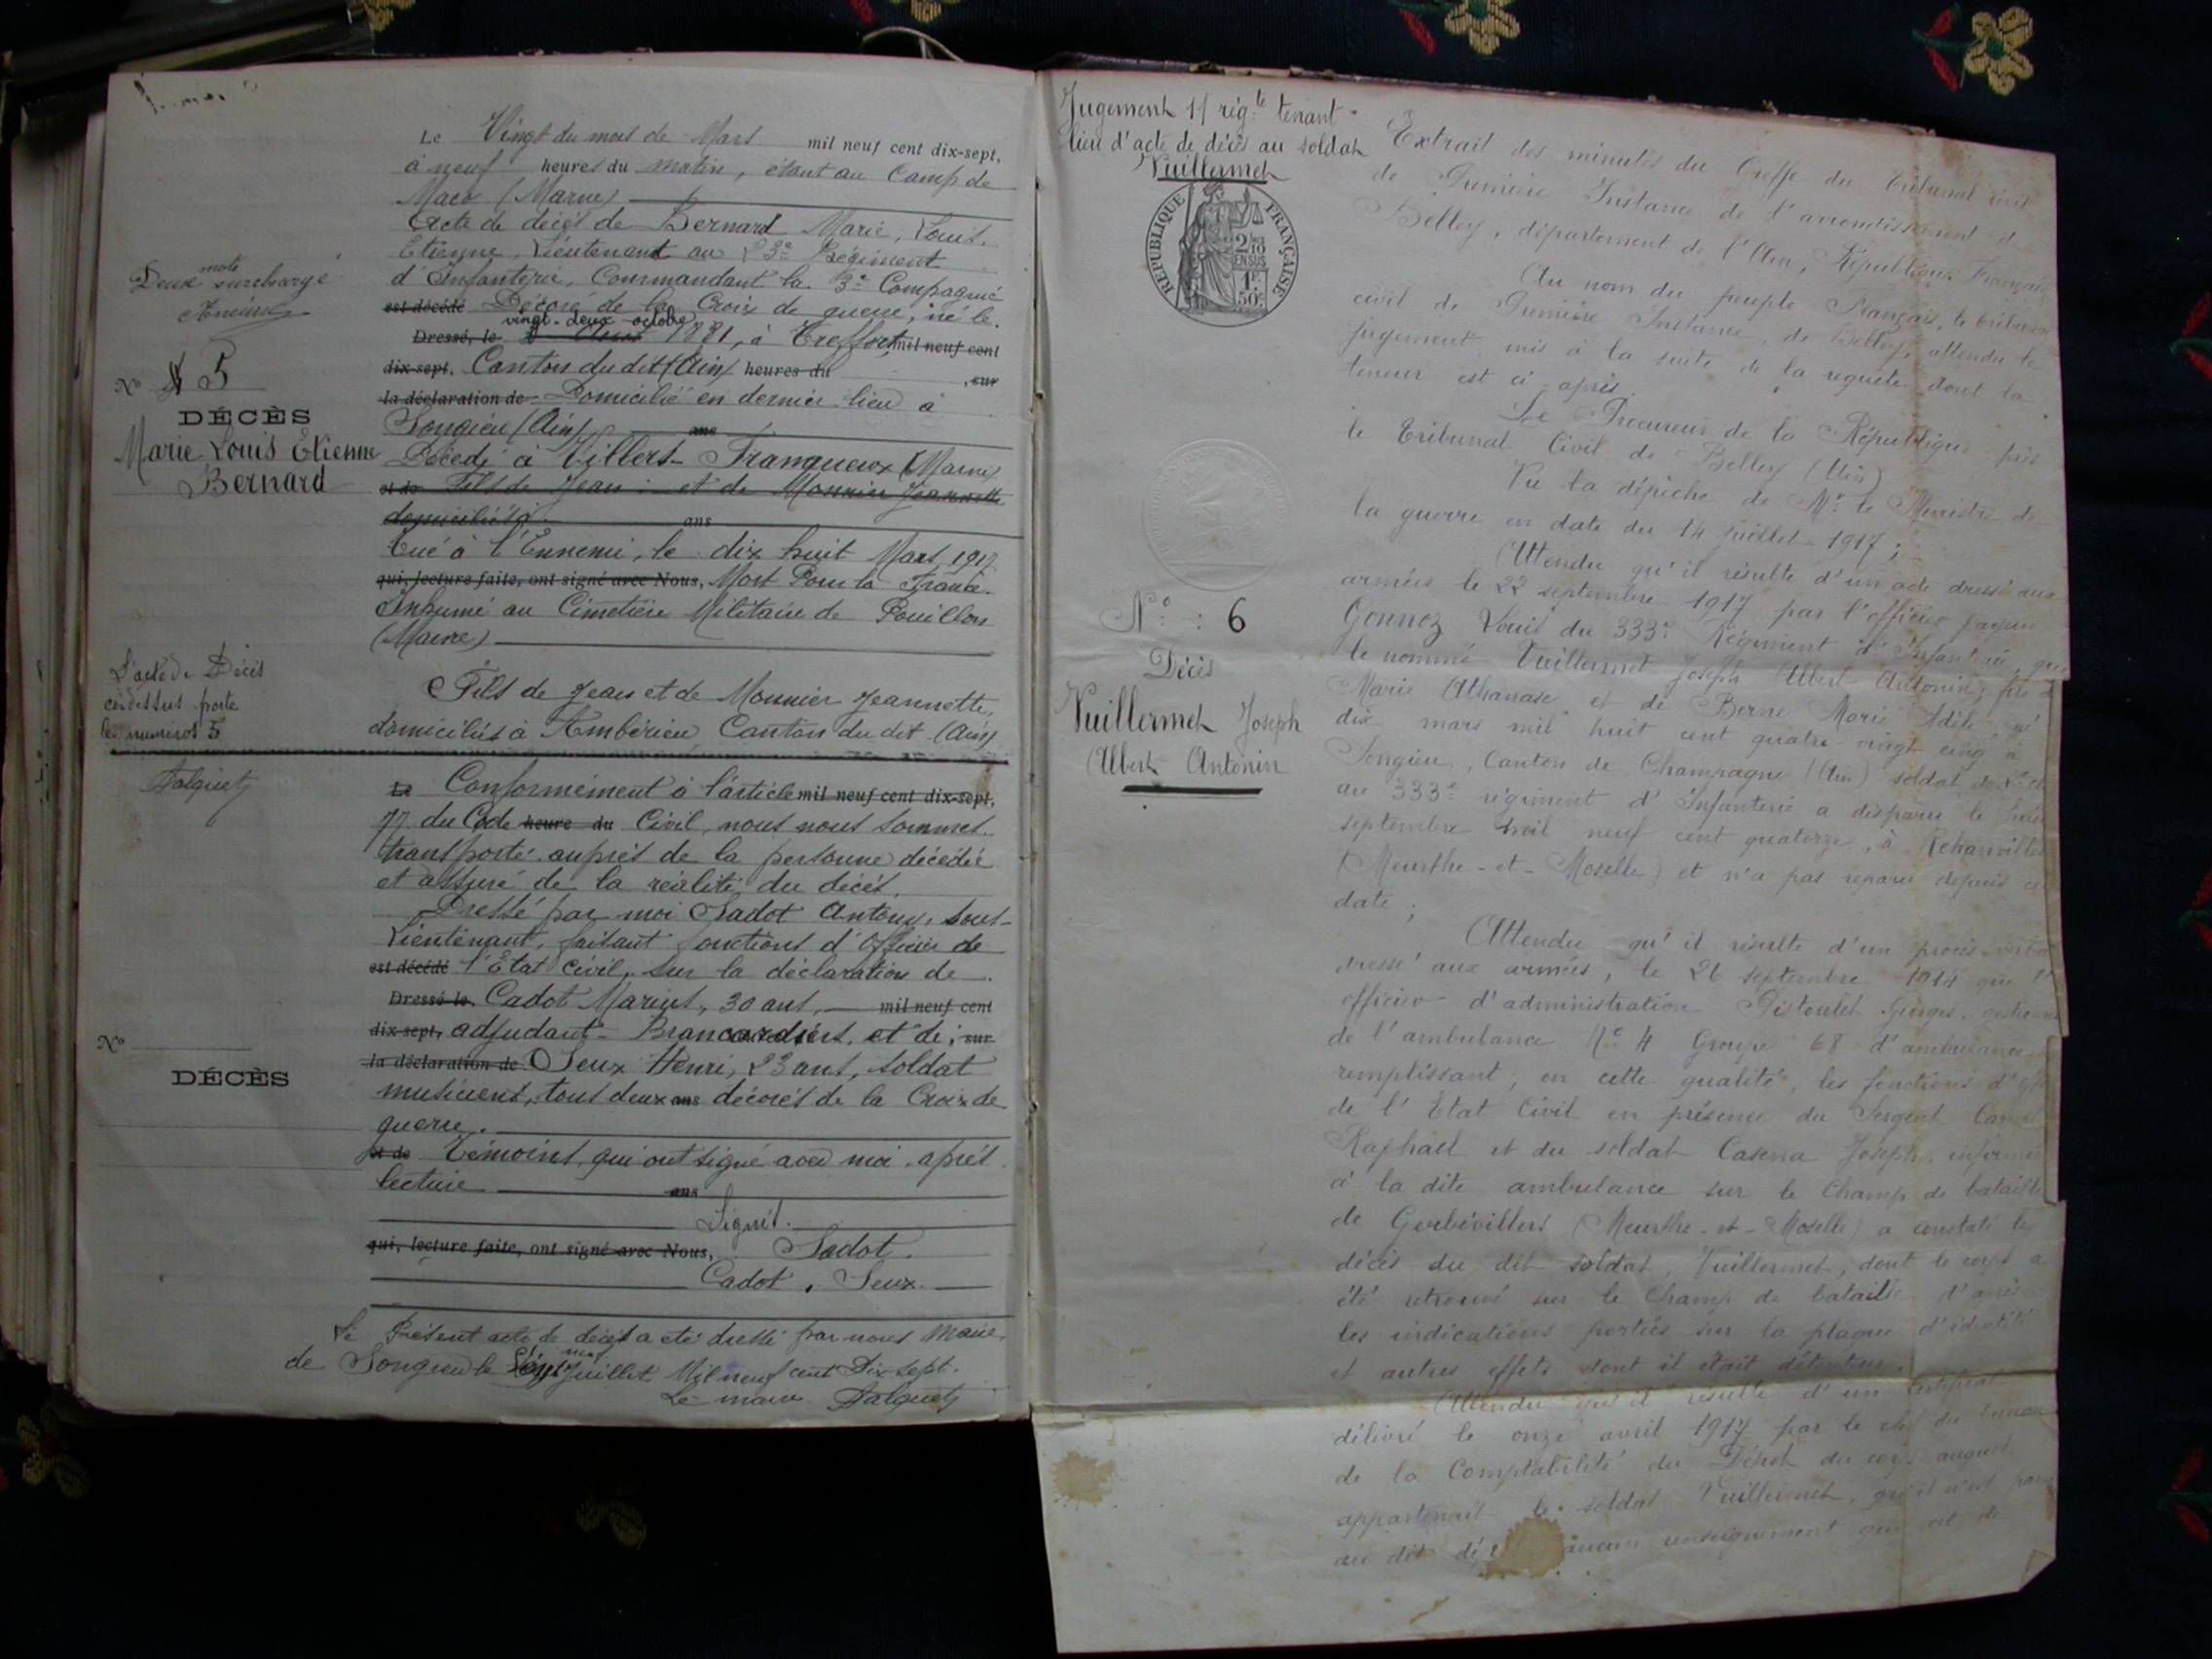 Le Vingt du mois de Mars mil neuf cent dix-sept,
à neuf heures du matin, étant au Camp de
(Marne)
Acte de décès de Bernard Marie, Louis,
Etienne, Lieutenant au 23e Régiment
d'Infanterie, Commandant la 3e Compagnie
est décédé Décoré de la Croix de guerre, né le
vingt-deux octobre
Dressé, le 1881, à Treffort mil neuf cent
dix-sept, Canton du dit (Ain) heures du , sur
la déclaration de Domicilié en dernier lieu à
Songieu (Ain) ans
Décédé à Villers-Franqueux (Marne)
et de Fils de Jean et de Monnier Jeannette
domiciliés à ans
Tué à l'Ennemi, le dix huit Mars 1917
qui, lecture faite, ont signé avec Nous, Mort Pour la France.
Inhumé au Cimetière Militaire de Pouillon
(Marne)
Fils de Jean et de Monnier Jeannette,
domiciliés à Ambérieu Canton du dit (Ain)
Deux mots surchargé
No 5
DÉCÈS
Marie Louis Etienne
Bernard
L'acte de Décès
cidessus porte
le numéros 5
Falquet
Le Conformément à l'article mil neuf cent dix-sept,
77 du Code heure du Civil, nous nous sommes
transporté auprès de la personne décédée
et assuré de la réalité du décès.
Dressé par moi Sadot Antony, Sous-
Lieutenant, faisant fonctions d'Officier de
est décédé l'Etat Civil, sur la déclaration de
Dressé le Cadot Marius, 30 ans, mil neuf cent
dix-sept, adjudant Brancardiers, et de , sur
la déclaration de Seux Henri, 23 ans, soldat
musiciens, tous deux ans décorés de la Croix de
guerre.
et de Témoins, qui ont signé avec moi après
lecture ans
Signés.
qui, lecture faite, ont signé avec Nous, Sadot.
Cadot, Seux.
No
DÉCÈS
Le Présent acte de décès a été dressé par nous Maire
de Songieu le neuf Juillet Mil neuf cent Dix Sept.
Le maire Falquet
Jugement tenant
lieu d'acte de décès au soldat
Vuillermet
REPUBLIQUE FRANÇAISE
2/10 EN SUS
1F 50c
No : 6
Décès
Vuillermet Joseph
Albert Antonin
Extrait des minutes du Greffe du tribunal civil
de Première Instance de l'arrondissement de
Belley, département de l'Ain, République Française
Au nom du peuple Français, le tribunal
civil de Première Instance, de Belley, attendu le
jugement mis à la suite de la requête dont la
teneur est ci-après.
Le Procureur de la République près
le Tribunal Civil de Belley (Ain)
Vu la dépêche de Mr le Ministre de
la guerre en date du 14 juillet 1917 ;
Attendu qu'il résulte d'un acte dressé aux
armées le 22 septembre 1917 par l'officier payeur
Gonnez Louis du 333e Régiment d'Infanterie, que
le nommé Vuillermet Joseph Albert Antonin, fils de
Marie Athanase et de Berne Marie Adèle, né
dix mars mil huit cent quatre-vingt cinq à
Songieu, Canton de Champagne (Ain) soldat de 2e cl
au 333e régiment d'Infanterie a disparu le
septembre mil neuf cent quatorze, à Rehainviller
(Meurthe-et-Moselle) et n'a pas reparu depuis ce
date ;
Attendu qu'il résulte d'un procès-verbal
dressé aux armées, le 26 septembre 1914 que l'
officier d'administration Pistoulet Georges, gestionnaire
de l'ambulance No 4 Groupe 68 d'ambulance
remplissant, en cette qualité, les fonctions d'
de l'Etat Civil en présence du Sergent
Raphael et du soldat Casena Joseph, infirmier
à la dite ambulance sur le Champ de bataille
de Gerbévillers (Meurthe-et-Moselle) a constaté le
décès du dit soldat Vuillermet, dont le corps a
été retrouvé sur le Champ de bataille d'après
les indications portées sur la plaque d'identité
et autres effets dont il était détenteur.
Attendu qu'il résulte d'un certificat
délivré le onze avril 1917 par le chef du bureau
de la Comptabilité du Dépôt du corps auquel
appartenait le soldat Vuillermet, qu'il n'est
au dit aucun renseignement qui